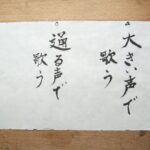 大きい声で
歌う
通る声で
歌う